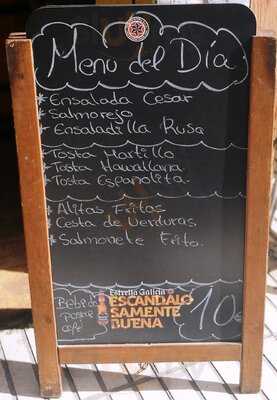 Menu del Día
* Ensalada Cesar
* Salmorejo
* Ensaladilla Rusa
* Tosta Martillo
* Tosta Hawallana
* Tosta Españolita
* Alitas Fritas
* Cesta de Verduras
* Salmonete Frito.
Estrella Galicia
ESCANDALO
SAMENTE
BUENA
Bebida
Postre
café
10€